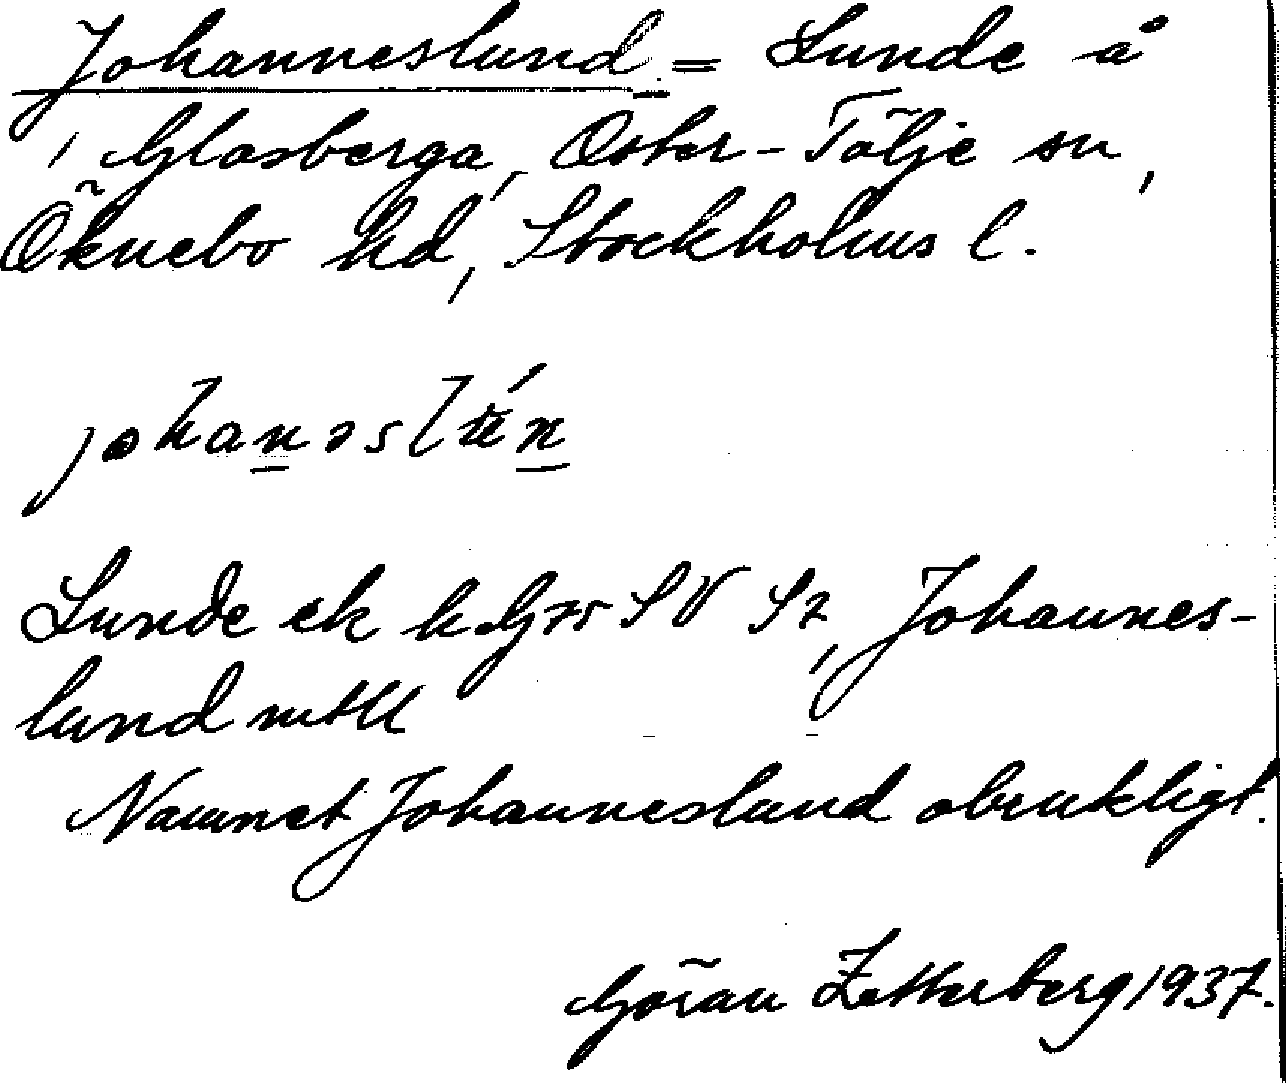 Johanneslund = Lunde å
i Glasberga, Öster-Tälje sn,
Öknebo hd, Stockholms l.
johanəs
Lunde ek k. G75 SV S2, Johannes-
lund mtll
Namnet Johanneslund obrukligt.
Göran Zetterberg 1937.